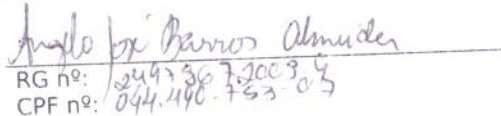 Angelo José Barros Almeida
RG nº: 2497367.2003-4
CPF nº: 044.490.753-03